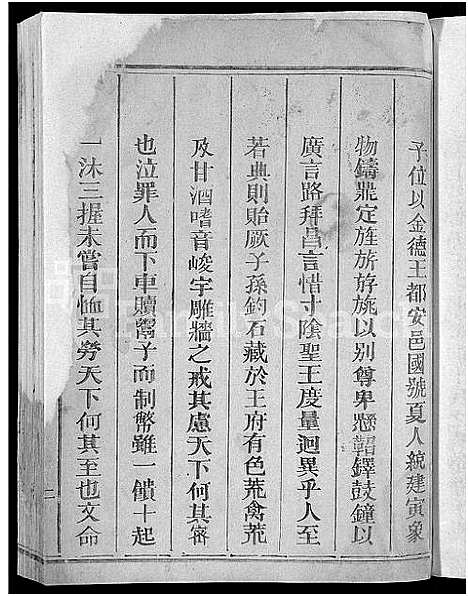 子位以金德王都安邑國號夏人統建寅象
物鑄鼎定旌旂斿旐以别尊卑懸鞀鐸鼓鐘以
廣言路拜昌言惜寸陰聖王度量迥異乎人至
若典則貽厥子孫鈞石藏於王府有色荒禽荒
及甘酒嗜音峻宇雕牆之戒其慮天下何其密
也泣罪人而下車贖鬻子而制幣雖一饋十起
一沐三握未嘗自恤其勞天下何其至也文命
二